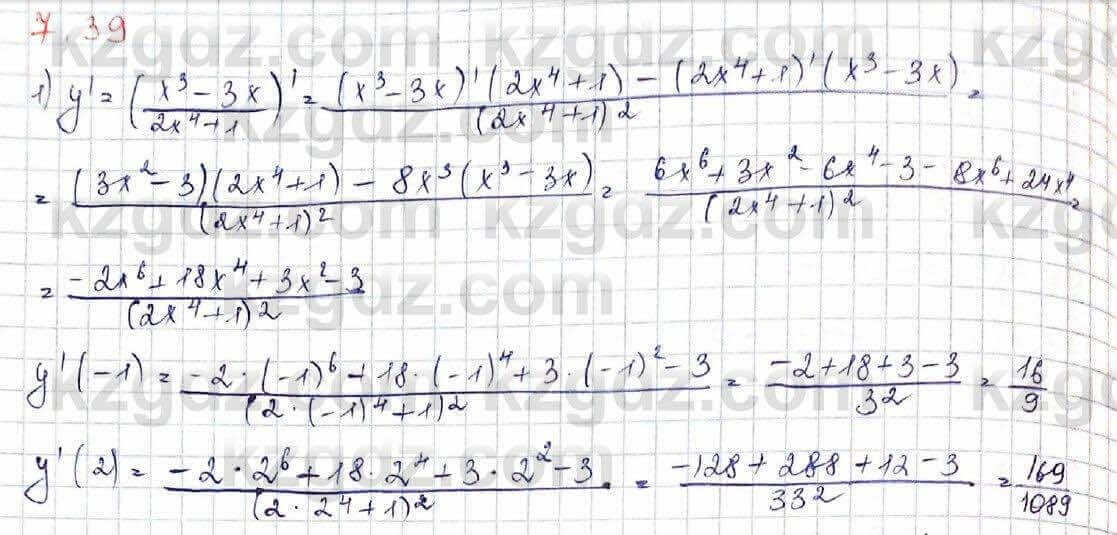 7.39
1) y' = (x³ - 3x / 2x⁴ + 1)' = (x³ - 3x)' (2x⁴ + 1) - (2x⁴ + 1)' (x³ - 3x) / (2x⁴ + 1)² =
= (3x² - 3)(2x⁴ + 1) - 8x³ (x³ - 3x) / (2x⁴ + 1)² = 6x⁶ + 3x² - 6x⁴ - 3 - 8x⁶ + 24x⁴ / (2x⁴ + 1)² =
= -2x⁶ + 18x⁴ + 3x² - 3 / (2x⁴ + 1)²
y'(-1) = -2 · (-1)⁶ + 18 · (-1)⁴ + 3 · (-1)² - 3 / (2 · (-1)⁴ + 1)² = -2 + 18 + 3 - 3 / 3² = 16 / 9
y'(2) = -2 · 2⁶ + 18 · 2⁴ + 3 · 2² - 3 / (2 · 2⁴ + 1)² = -128 + 288 + 12 - 3 / 33² = 169 / 1089
kzgdz.com